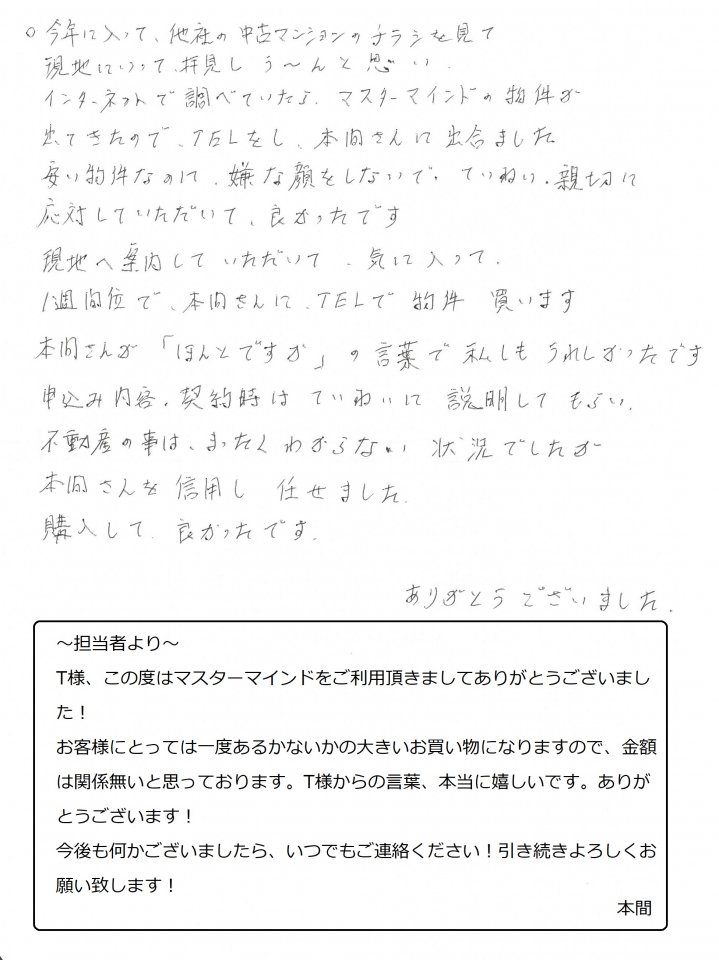 ○ 今年に入って、他社の中古マンションのチラシを見て
現地にいって、拝見し う〜んと思い、
インターネットで調べていたら、マスターマインドの物件が
出てきたので、TELをし、本間さんに出合ました
安い物件なのに、嫌な顔をしないで、ていねい、親切に
応対していただいて、良かったです
現地へ案内していただいて、気に入って、
1週間位で、本間さんに、TELで 物件 買います
本間さんが「ほんとですか」の言葉で私しもうれしかったです
申込み内容、契約時はていねいに説明してもらい、
不動産の事は、まったくわからない状況でしたが
本間さんを信用し 任せました。
購入して、良かったです。
ありがとうございました。
～担当者より～
T様、この度はマスターマインドをご利用頂きましてありがとうございまし
た！
お客様にとっては一度あるかないかの大きいお買い物になりますので、金額
は関係無いと思っております。T様からの言葉、本当に嬉しいです。ありが
とうございます！
今後も何かございましたら、いつでもご連絡ください！引き続きよろしくお
願い致します！
本間